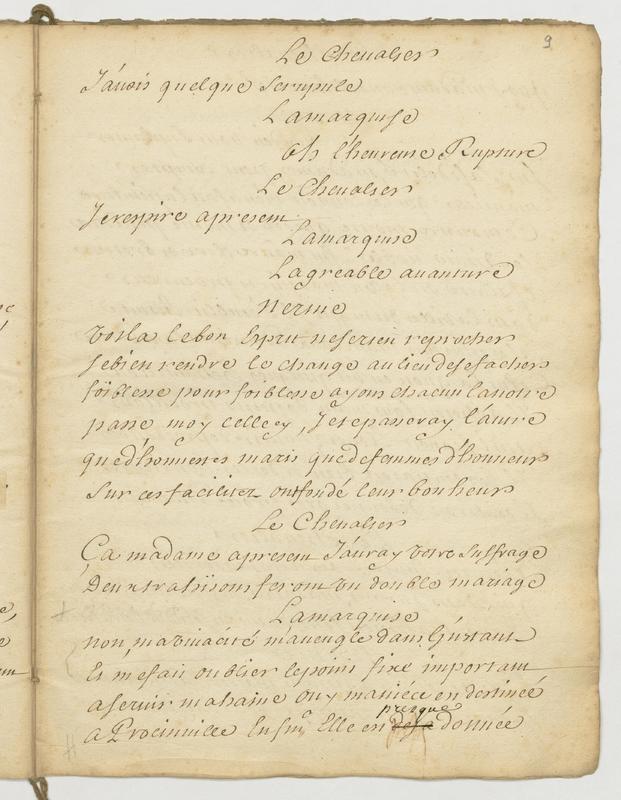 9
Le Chevalier
J'avois quelque scrupule
Lamarquise
Oh l'heureuse Rupture
Le Chevalier
Jerespire apresent
Lamarquise
Lagreable avanture
Nerine
voila lebon Esprit neserien reprocher
sebien rendre le change aulieu desefacher
foiblesse pour foiblesse ayons chacun lanotre
passe moy cellecy, Jetepasseray l'autre
qued'honnestes maris quedefemmes d'honneur
sur cesfacilitez ontfondé leur bonheur
Le Chevalier
Ça madame apresent J'auray votre suffrage
Deux trahisons feront un double mariage
Lamarquise
non, mavivacité m'aveugle dans L'instant
Et mefait oublier lepoint fixe important
aservir mahaine ouy maniéce en destinée
presque
a Procinville Enfin Elle en deja donnée